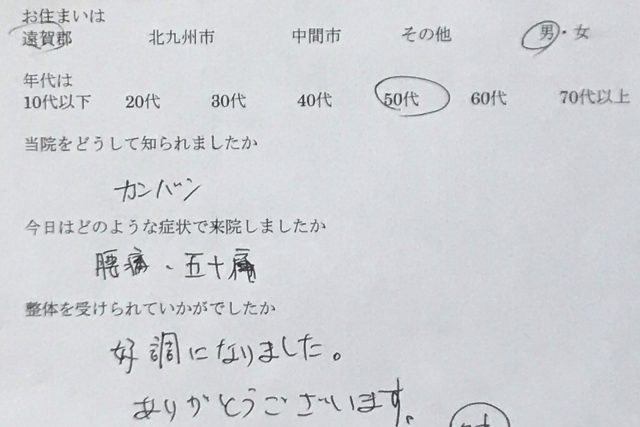 お住まいは
遠賀郡 北九州市 中間市 その他 男・女
年代は
10代以下 20代 30代 40代 50代 60代 70代以上
当院をどうして知られましたか
カンバン
今日はどのような症状で来院しましたか
腰痛、五十肩
整体を受けられていかがでしたか
好調になりました。
ありがとうございます。